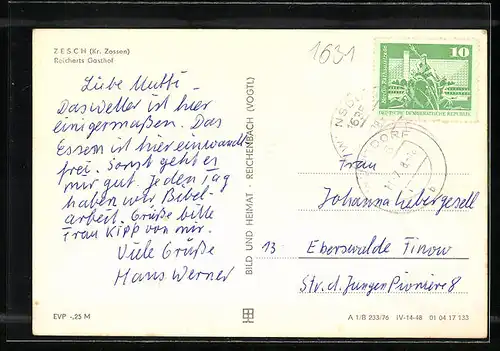 1631
ZESCH (Kr. Zossen)
Reicherts Gasthof
10
DEUTSCHE DEMOKRATISCHE REPUBLIK
Liebe Mutti.
Das Wetter ist hier
einigermaßen. Das
Essen ist hier einwand
frei. Sonst geht es
mir gut. Jeden Tag
haben wir Bibel-
arbeit. Grüße bitte
Frau Kipp von mir.
Viele Grüße
Hans Werner
BILD UND HEIMAT · REICHENBACH (VOGTL)
Frau
Johanna Liebergesell
13 Eberswalde Finow
Str. d. Jungen Pioniere 8
EVP -,25 M
A 1/B 233/76 IV-14-48 01 04 17 133